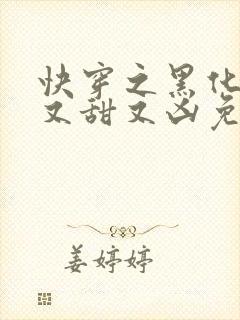 快穿之黑化
又甜又凶免
姜婷婷